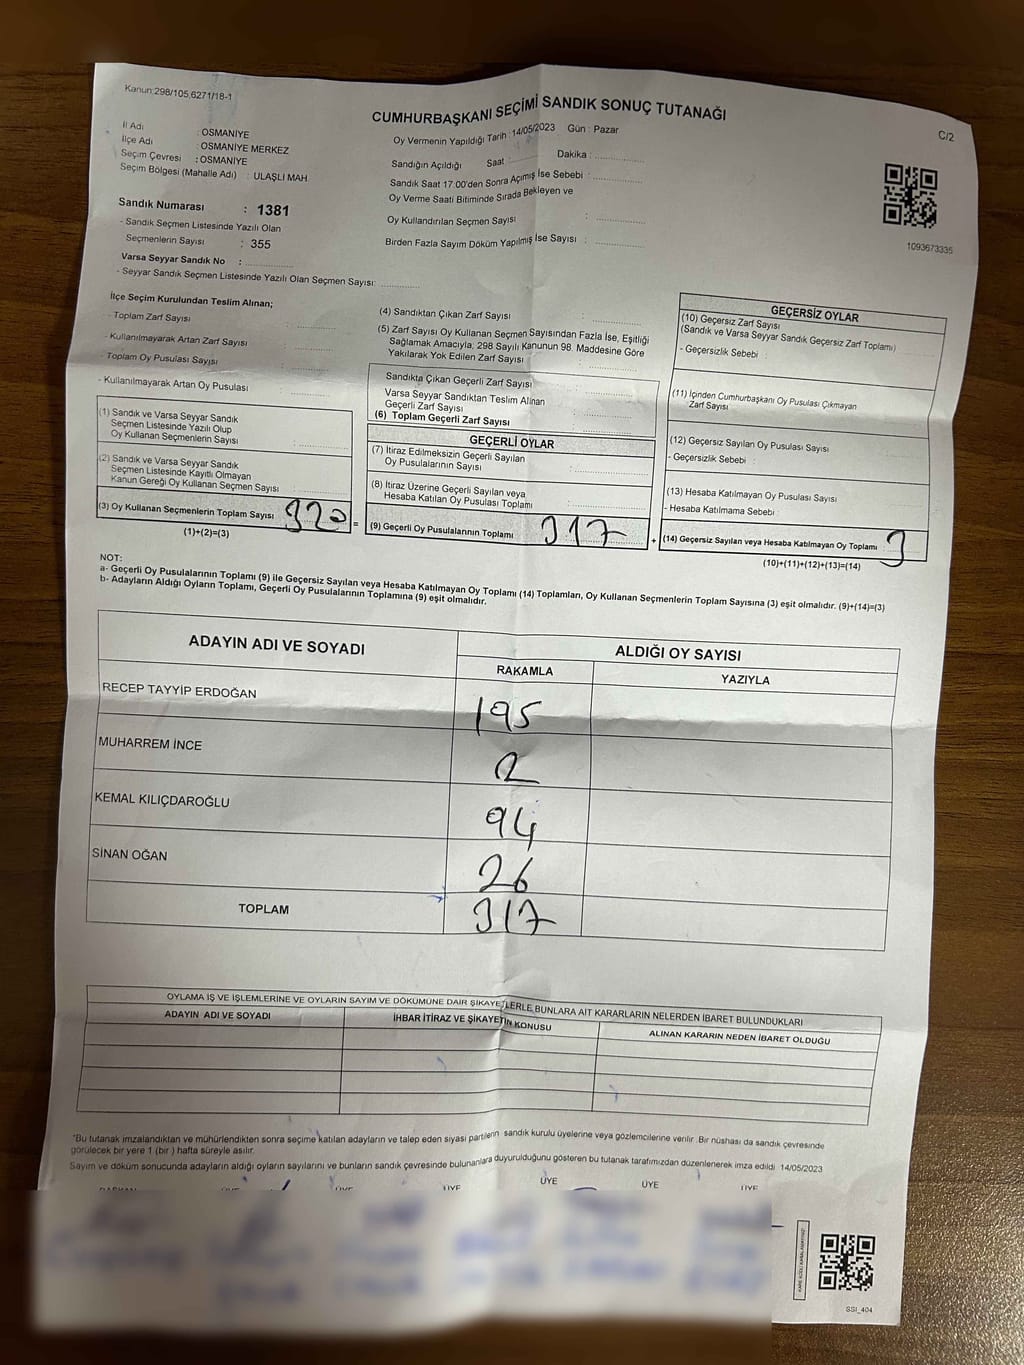 Kanun:298/105,6271/18-1
CUMHURBAŞKANI SEÇİMİ SANDIK SONUÇ TUTANAĞI
C/2
İl Adı : OSMANİYE
İlçe Adı : OSMANİYE MERKEZ
Seçim Çevresi : OSMANİYE
Seçim Bölgesi (Mahalle Adı) : ULAŞLI MAH
Sandık Numarası : 1381
- Sandık Seçmen Listesinde Yazılı Olan
Seçmenlerin Sayısı : 355
Varsa Seyyar Sandık No :
- Seyyar Sandık Seçmen Listesinde Yazılı Olan Seçmen Sayısı:
Oy Vermenin Yapıldığı Tarih :14/05/2023 Gün : Pazar
Sandığın Açıldığı Saat Dakika :
Sandık Saat 17.00'den Sonra Açımış İse Sebebi :
Oy Verme Saati Bitiminde Sırada Bekleyen ve
Oy Kullandırılan Seçmen Sayısı :
Birden Fazla Sayım Döküm Yapılmış İse Sayısı :
1093673335
İlçe Seçim Kurulundan Teslim Alınan;
- Toplam Zarf Sayısı :
- Kullanılmayarak Artan Zarf Sayısı :
- Toplam Oy Pusulası Sayısı :
- Kullanılmayarak Artan Oy Pusulası :
(1) Sandık ve Varsa Seyyar Sandık
Seçmen Listesinde Yazılı Olup
Oy Kullanan Seçmenlerin Sayısı :
(2) Sandık ve Varsa Seyyar Sandık
Seçmen Listesinde Kayıtlı Olmayan
Kanun Gereği Oy Kullanan Seçmen Sayısı :
(3) Oy Kullanan Seçmenlerin Toplam Sayısı : 320 =
(1)+(2)=(3)
(4) Sandıktan Çıkan Zarf Sayısı :
(5) Zarf Sayısı Oy Kullanan Seçmen Sayısından Fazla İse, Eşitliği
Sağlamak Amacıyla; 298 Sayılı Kanunun 98. Maddesine Göre
Yakılarak Yok Edilen Zarf Sayısı :
Sandıkta Çıkan Geçerli Zarf Sayısı :
Varsa Seyyar Sandıktan Teslim Alınan
Geçerli Zarf Sayısı :
(6) Toplam Geçerli Zarf Sayısı :
GEÇERLİ OYLAR
(7) İtiraz Edilmeksizin Geçerli Sayılan
Oy Pusulalarının Sayısı :
(8) İtiraz Üzerine Geçerli Sayılan veya
Hesaba Katılan Oy Pusulası Toplamı :
(9) Geçerli Oy Pusulalarının Toplamı : 317 +
GEÇERSİZ OYLAR
(10) Geçersiz Zarf Sayısı
(Sandık ve Varsa Seyyar Sandık Geçersiz Zarf Toplamı)
- Geçersizlik Sebebi :
(11) İçinden Cumhurbaşkanı Oy Pusulası Çıkmayan
Zarf Sayısı
(12) Geçersiz Sayılan Oy Pusulası Sayısı
- Geçersizlik Sebebi :
(13) Hesaba Katılmayan Oy Pusulası Sayısı
- Hesaba Katılmama Sebebi :
(14) Geçersiz Sayılan veya Hesaba Katılmayan Oy Toplamı : 3
(10)+(11)+(12)+(13)=(14)
NOT:
a- Geçerli Oy Pusulalarının Toplamı (9) ile Geçersiz Sayılan veya Hesaba Katılmayan Oy Toplamı (14) Toplamları, Oy Kullanan Seçmenlerin Toplam Sayısına (3) eşit olmalıdır. (9)+(14)=(3)
b- Adayların Aldığı Oyların Toplamı, Geçerli Oy Pusulalarının Toplamına (9) eşit olmalıdır.
ADAYIN ADI VE SOYADI ALDIĞI OY SAYISI
RAKAMLA YAZIYLA
RECEP TAYYİP ERDOĞAN 195
MUHARREM İNCE 2
KEMAL KILIÇDAROĞLU 94
SİNAN OĞAN 26
TOPLAM 317
OYLAMA İŞ VE İŞLEMLERİNE VE OYLARIN SAYIM VE DÖKÜMÜNE DAİR ŞİKAYETLERLE BUNLARA AİT KARARLARIN NELERDEN İBARET BULUNDUKLARI
ADAYIN ADI VE SOYADI İHBAR İTİRAZ VE ŞİKAYETİN KONUSU ALINAN KARARIN NEDEN İBARET OLDUĞU
*Bu tutanak imzalandıktan ve mühürlendikten sonra seçime katılan adayların ve talep eden siyasi partilerin sandık kurulu üyelerine veya gözlemcilerine verilir. Bir nüshası da sandık çevresinde
görülecek bir yere 1 (bir ) hafta süreyle asılır.
Sayım ve döküm sonucunda adayların aldığı oyların sayılarını ve bunların sandık çevresinde bulunanlara duyurulduğunu gösteren bu tutanak tarafımızdan düzenlenerek imza edildi 14/05/2023
BAŞKAN ÜYE ÜYE ÜYE ÜYE ÜYE ÜYE
SSI_404